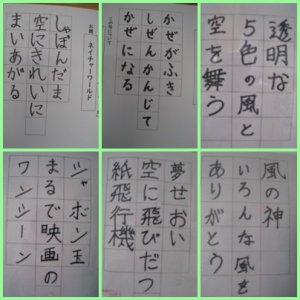 お題 ネイチャーワールド
しゃぼんだま
空にきれいに
まいあがる
かぜがふき
しぜんかんじて
かぜになる
透明な
5色の風と
空を舞う
シャボン玉
まるで映画の
ワンシーン
夢せおい
空に飛びだつ
紙飛行機
風の神
いろんな風を
ありがとう